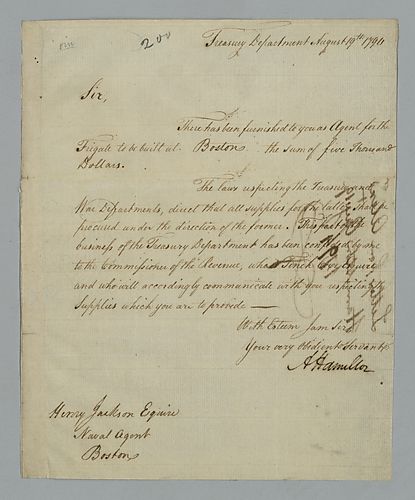 200
Treasury Department August 19th 1794
Sir,
There has been furnished to you as Agent for the
Frigate to be built at Boston the sum of five Thousand
Dollars.
The laws respecting the Treasury and
War Departments, direct that all supplies for the latter shall be
procured under the direction of the former. This part of the
business of the Treasury Department has been confided by me
to the Commissioner of the Revenue, who is Tench Coxe Esquire
and who will accordingly communicate with you respecting the
supplies which you are to provide —
With Esteem I am Sir
Your very Obedient Servant
A Hamilton
Henry Jackson Esquire
Naval Agent
Boston